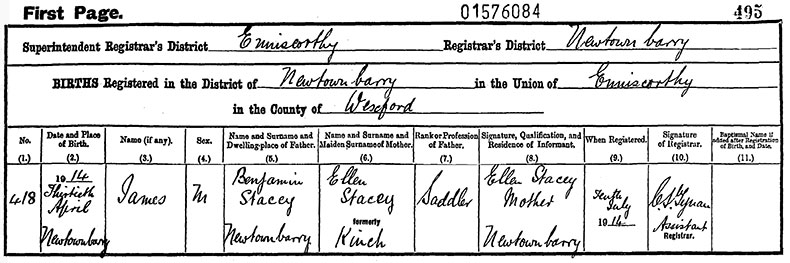 First Page. 01576084 495
Superintendent Registrar's District Enniscorthy Registrar's District Newtownbarry
BIRTHS Registered in the District of Newtownbarry in the Union of Enniscorthy
in the County of Wexford
No. Date and Place of Birth. Name (if any). Sex. Name and Surname and Dwelling-place of Father. Name and Surname and Maiden Surname of Mother. Rank or Profession of Father. Signature, Qualification, and Residence of Informant. When Registered. Signature of Registrar. Baptismal Name if added after Registration of Birth, and Date.
(1.) (2.) (3.) (4.) (5.) (6.) (7.) (8.) (9.) (10.) (11.)
418 1914 Thirtieth April Newtownbarry James M Benjamin Stacey Newtownbarry Ellen Stacey formerly Kinch Saddler Ellen Stacey Mother Newtownbarry Tenth July 1914 Assistant Registrar.